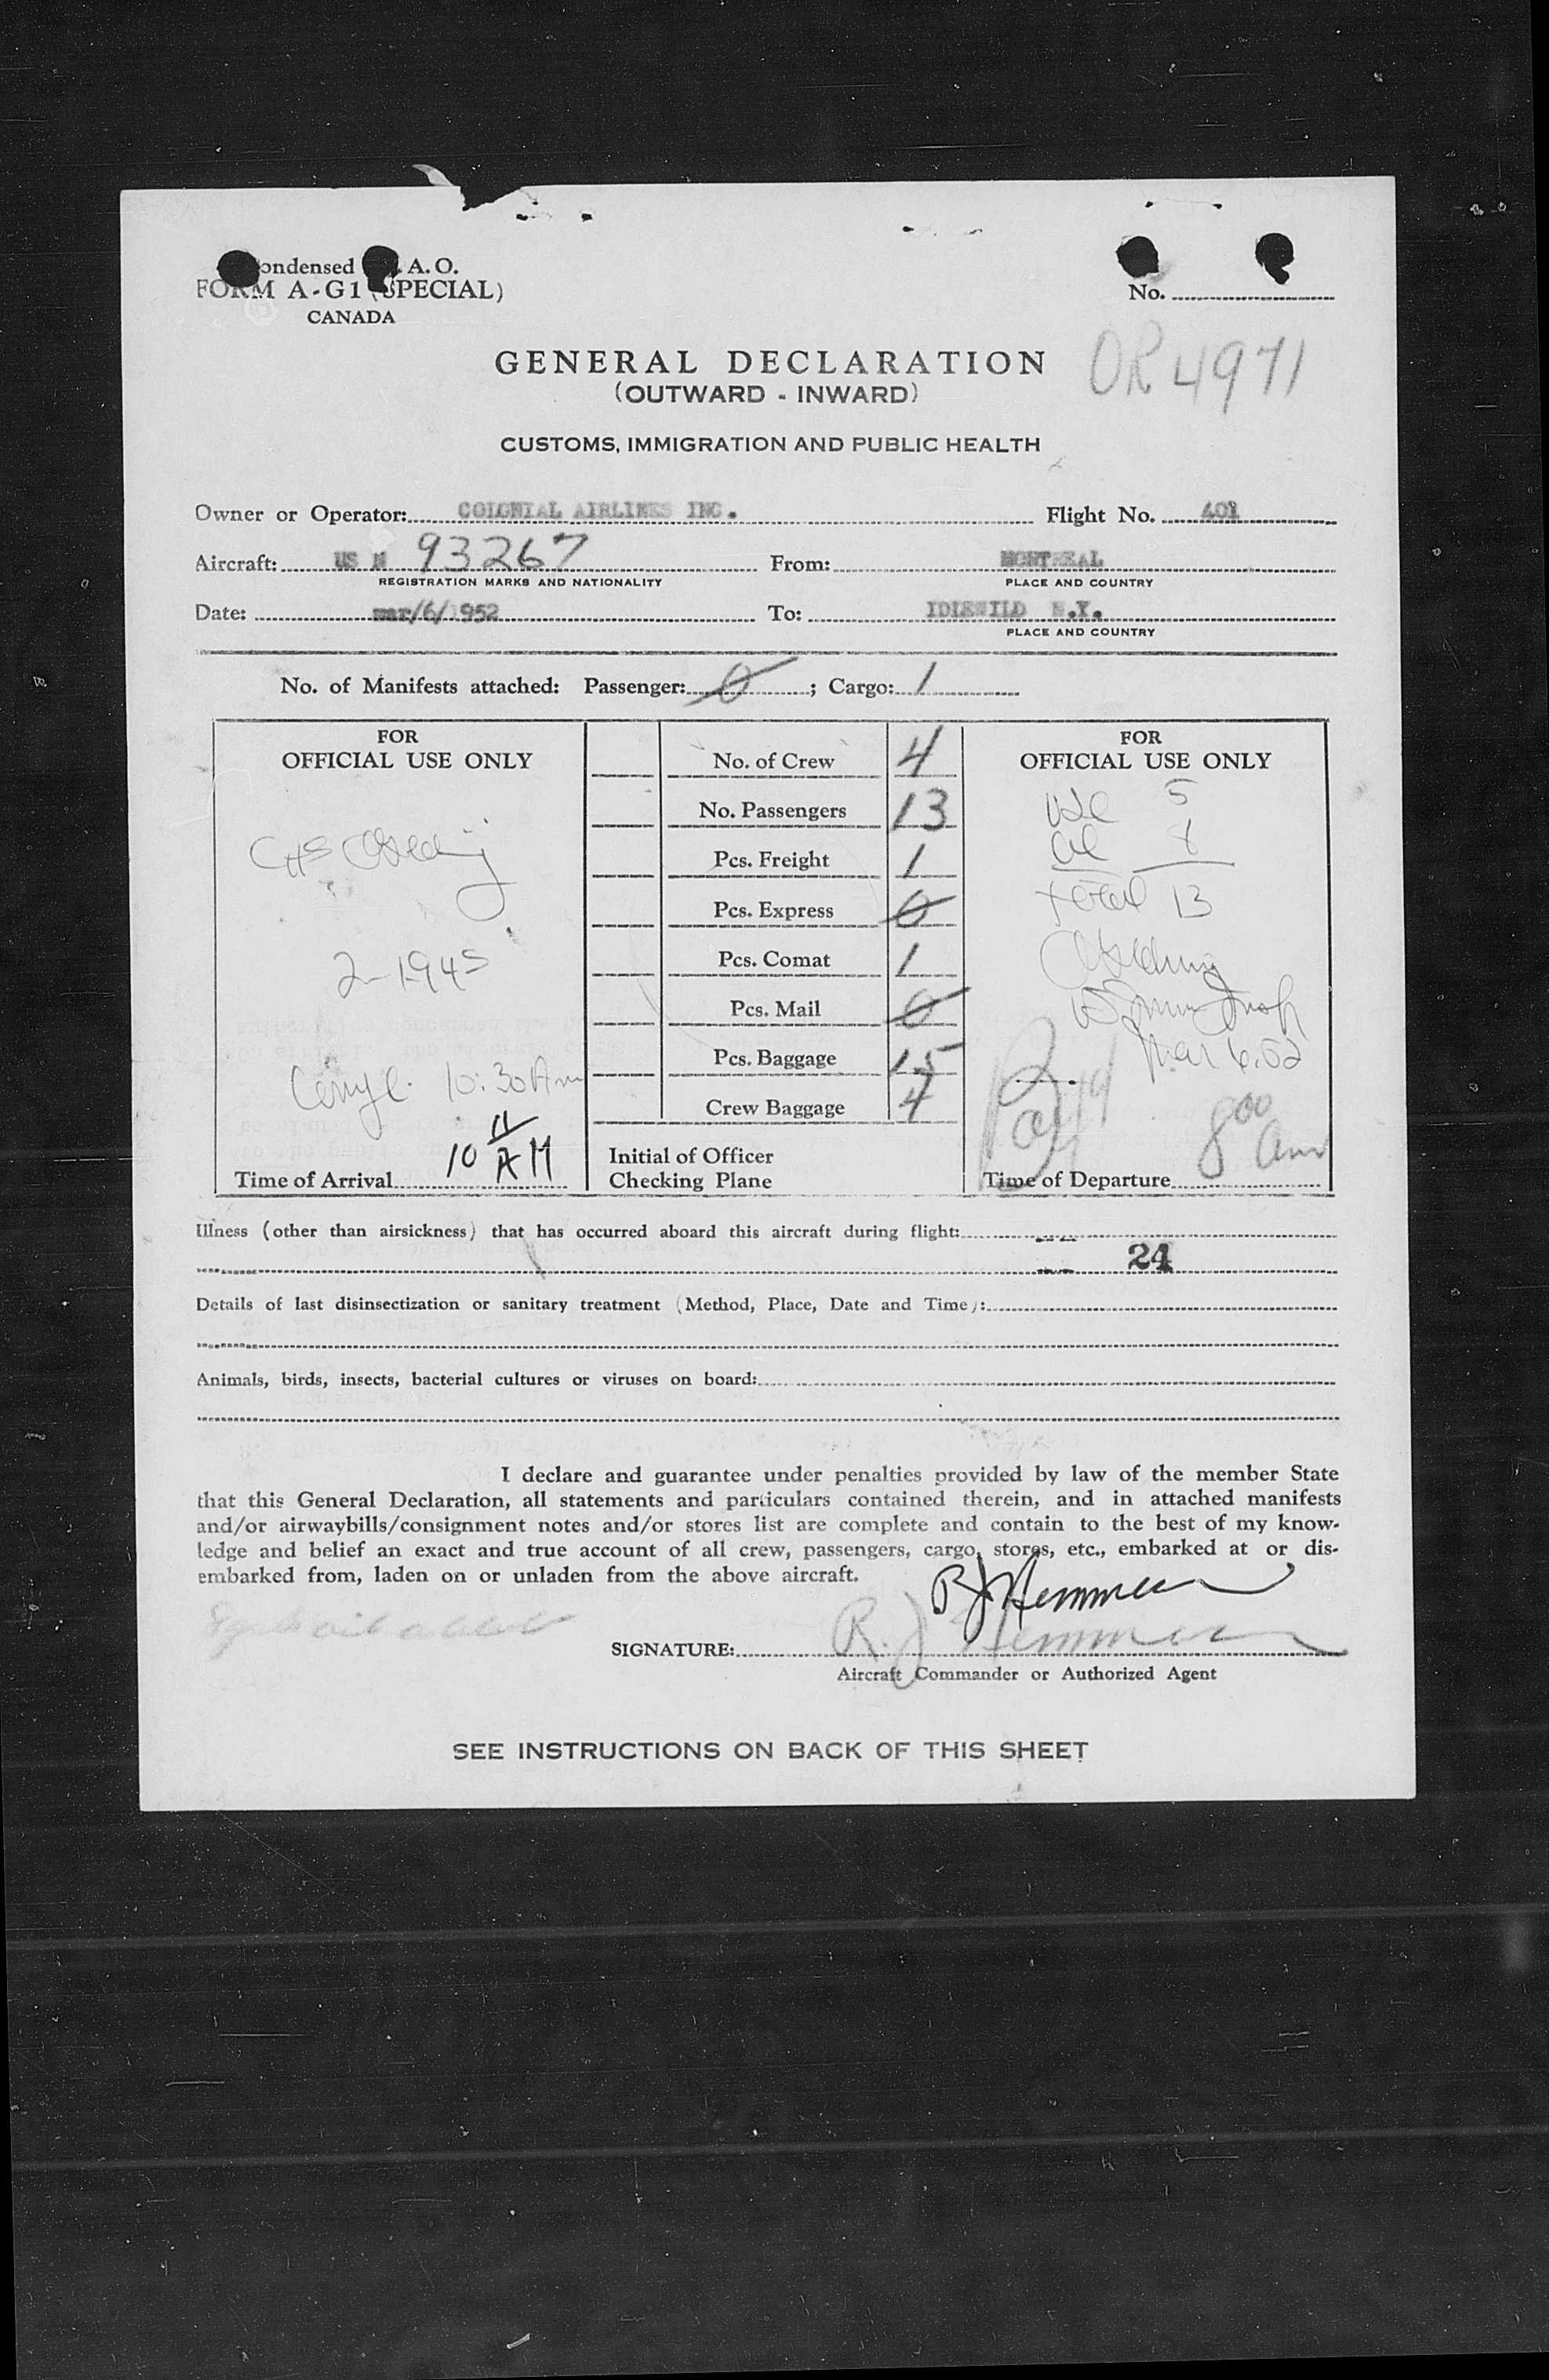 ondensed . A. O.
FORM A-G1 (SPECIAL)
CANADA
No.
GENERAL DECLARATION
OR 4971
(OUTWARD - INWARD)
CUSTOMS, IMMIGRATION AND PUBLIC HEALTH
Owner or Operator: COLONIAL AIRLINES INC. Flight No. 401
Aircraft: US N 93267 From: MONTREAL
REGISTRATION MARKS AND NATIONALITY PLACE AND COUNTRY
Date: mar/6/1952 To: IDLEWILD N.Y.
PLACE AND COUNTRY
No. of Manifests attached: Passenger: 0 ; Cargo: 1
FOR
OFFICIAL USE ONLY
2-1945
10:30 Am
Time of Arrival 10 11 AM
No. of Crew 4
No. Passengers 13
Pcs. Freight 1
Pcs. Express 0
Pcs. Comat 1
Pcs. Mail 0
Pcs. Baggage 15
Crew Baggage 4
Initial of Officer
Checking Plane
FOR
OFFICIAL USE ONLY
5
8
total 13
Mar 6.52
800 am
Time of Departure
Illness (other than airsickness) that has occurred aboard this aircraft during flight:
24
Details of last disinsectization or sanitary treatment (Method, Place, Date and Time):
Animals, birds, insects, bacterial cultures or viruses on board:
I declare and guarantee under penalties provided by law of the member State
that this General Declaration, all statements and particulars contained therein, and in attached manifests
and/or airwaybills/consignment notes and/or stores list are complete and contain to the best of my know-
ledge and belief an exact and true account of all crew, passengers, cargo, stores, etc., embarked at or dis-
embarked from, laden on or unladen from the above aircraft.
SIGNATURE:
Aircraft Commander or Authorized Agent
SEE INSTRUCTIONS ON BACK OF THIS SHEET